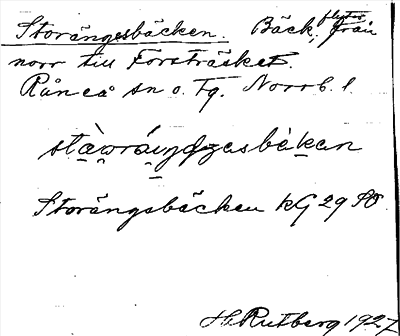 Storängesbäcken. Bäck, flyter från
norr till Forsträsket.
Råneå sn o. Tg. Norrb. l.
Storängsbäcken kG 29 SO
H. Rutberg 1927